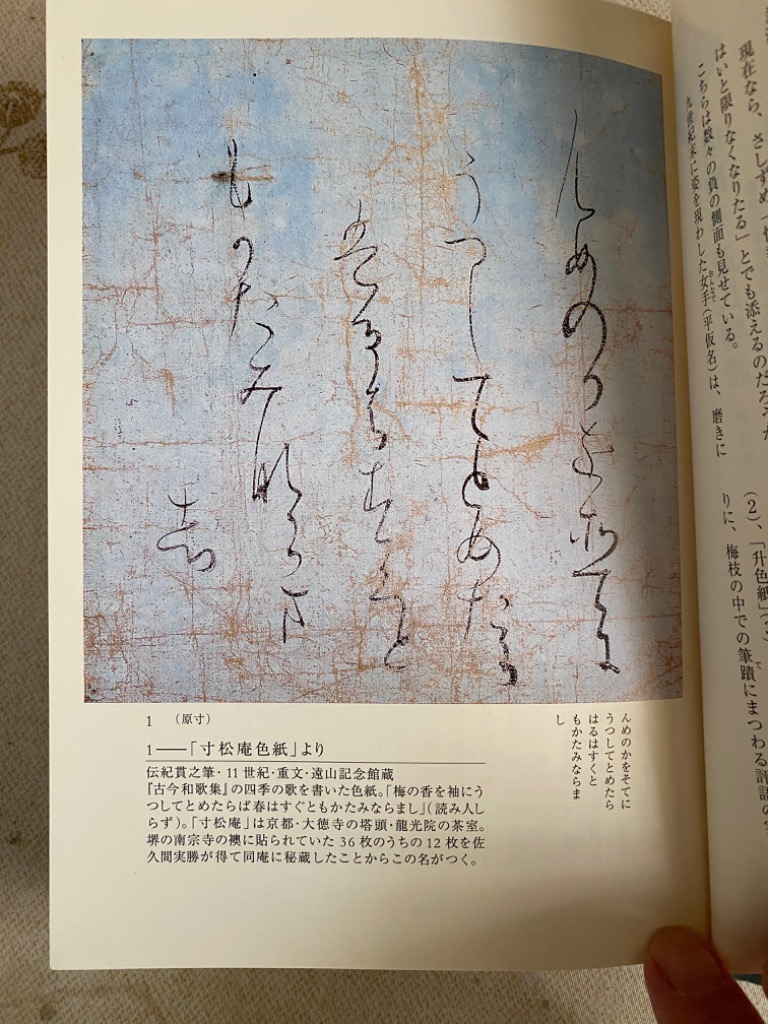 現在なら、さしずめ
はいと限りなくなりたる」とでも添えるのだろうか
こちらは数々の負の側面も見せている。
九世紀末に姿を現わした女手(平仮名)は、磨きに
(2)、「升色紙」
りに、梅枝の中での筆蹟にまつわる評語の
んめのかをそてに
うつしてとめたら
はるはすくと
もかたみならま
し
んめのかをそてに
うつしてとめたら
はるはすくと
もかたみならま
し
1 (原寸)
1――「寸松庵色紙」より
伝紀貫之筆・11世紀・重文・遠山記念館蔵
『古今和歌集』の四季の歌を書いた色紙。「梅の香を袖にう
つしてとめたらば春はすぐともかたみならまし」(読み人し
らず)。「寸松庵」は京都・大徳寺の塔頭・龍光院の茶室。
堺の南宗寺の襖に貼られていた36枚のうちの12枚を佐
久間実勝が得て同庵に秘蔵したことからこの名がつく。